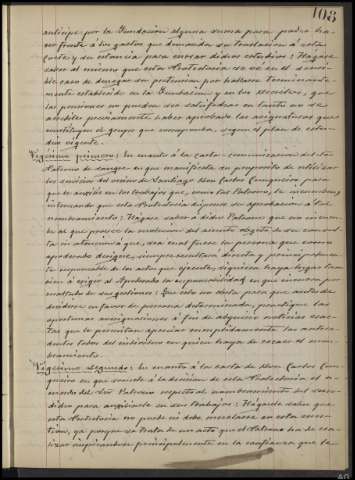 108
anticipe por la Fundación alguna suma para poder ha-
cer frente á los gastos que demanda su traslación á esta
Corte y su estancia para cursar dichos estudios: Hágase
saber al mismo que este Protectorado se ve en el sensi-
ble caso de denegar su pretensión por hallarse terminantemente
establecido en la Fundación y en los acuerdos, que
las pensiones no puedan ser satisfechas en tanto no se
acredite previamente haber aprobado las asignaturas que
constituyen el grupo que corresponda, según el plan de estu-
dios vigente.
Vigésimo primero: En cuanto á la carta-comunicación del
Patrono de en que manifiesta su propósito de utilizar
los servicios del vecino de Santiago Don Carlos para
que le auxilie en los trabajos que, como tal Patrono, le incumben,
interesando que este Protectorado dispense su aprobación á tal
nombramiento: Hágase saber á dicho Patrono que no incumbe
al que provee la resolución del asunto objeto de su consulta
en atención á que, sea cual fuese la persona que como
apoderado designe, siempre resultará directa y principalmente
responsable de los actos que ejecute, siquiera haya lugar también
á exigir al Apoderado la responsabilidad en que incurra
como resultado de sus gestiones: Que esto no obsta para que antes de
decidirse en favor de persona determinada, practique las
oportunas averiguaciones á fin de adquirir noticias exac-
tas que le permitan apreciar cumplidamente los antece-
dentes todos del individuo en quien haya de recaer el nom-
bramiento.
Vigésimo segundo: En cuanto á la carta de Don Carlos
en que somete á la decisión de este Protectorado el
acuerdo del Sor. Patrono respecto al nombramiento del
dicho para auxiliarle en sus trabajos: Hágasele saber que
este Protectorado no puede ni debe mezclarse en esta cues-
tión, ya porque se trata de un acto que el Patrono ha de rea-
lizar inspirándose principalmente en la confianza que le